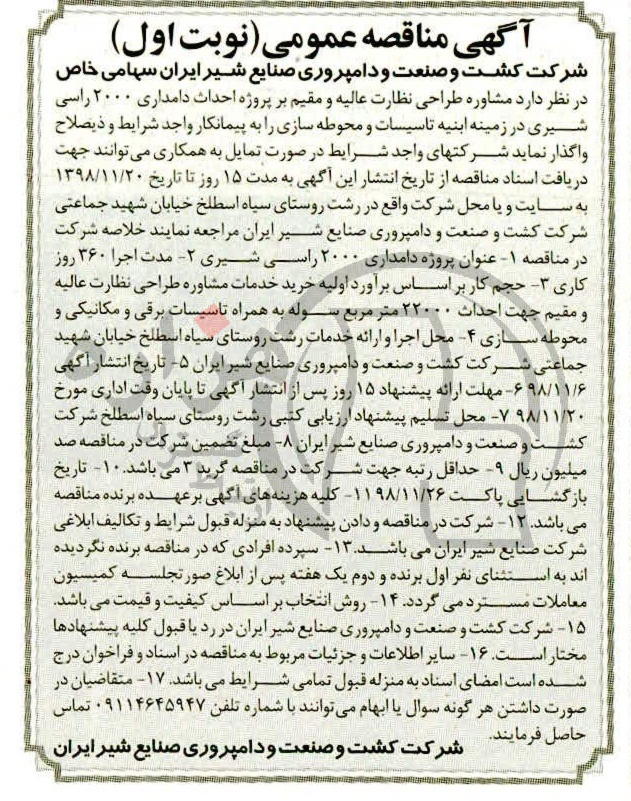 آگهی مناقصه عمومی (نوبت اول)
شرکت کشت و صنعت و دامپروری صنایع شیر ایران سهامی خاص
در نظر دارد مشاوره طراحی نظارت عالیه و مقیم بر پروژه احداث دامداری ۲۰۰۰ راسی
شیری در زمینه ابنیه تاسیسات و محوطه سازی را به پیمانکار واجد شرایط و ذیصلاح
واگذار نماید شرکتهای واجد شرایط در صورت تمایل به همکاری می‌توانند جهت
دریافت اسناد مناقصه از تاریخ انتشار این آگهی به مدت ۱۵ روز تا تاریخ ۱۳۹۸/۱۱/۲۰
به سایت و یا محل شرکت واقع در رشت روستای سیاه اسطلخ خیابان شهید جماعتی
شرکت کشت و صنعت و دامپروری صنایع شیر ایران مراجعه نمایند خلاصه شرکت
در مناقصه ۱- عنوان پروژه دامداری ۲۰۰۰ راسی شیری ۲- مدت اجرا ۳۶۰ روز
کاری ۳- حجم کار بر اساس برآورد اولیه خرید خدمات مشاوره طراحی نظارت عالیه
و مقیم جهت احداث ۲۲۰۰۰ متر مربع سوله به همراه تاسیسات برقی و مکانیکی و
محوطه سازی ۴- محل اجرا و ارائه خدمات رشت روستای سیاه اسطلخ خیابان شهید
جماعتی شرکت کشت و صنعت و دامپروری صنایع شیر ایران ۵- تاریخ انتشار آگهی
۹۸/۱۱/۶ ۶- مهلت ارائه پیشنهاد ۱۵ روز پس از انتشار آگهی تا پایان وقت اداری مورخ
۹۸/۱۱/۲۰ ۷- محل تسلیم پیشنهاد ارزیابی کتبی رشت روستای سیاه اسطلخ شرکت
کشت و صنعت و دامپروری صنایع شیر ایران ۸- مبلغ تضمین شرکت در مناقصه صد
میلیون ریال ۹- حداقل رتبه جهت شرکت در مناقصه گرید ۳ می باشد. ۱۰- تاریخ
بازگشایی پاکت ۹۸/۱۱/۲۶ ۱۱- کلیه هزینه‌های آگهی بر عهده برنده مناقصه
می باشد. ۱۲- شرکت در مناقصه و دادن پیشنهاد به منزله قبول شرایط و تکالیف ابلاغی
شرکت صنایع شیر ایران می باشد. ۱۳- سپرده افرادی که در مناقصه برنده نگردیده
اند به استثنای نفر اول برنده و دوم یک هفته پس از ابلاغ صورتجلسه کمیسیون
معاملات مسترد می گردد. ۱۴- روش انتخاب بر اساس کیفیت و قیمت می باشد.
۱۵- شرکت کشت و صنعت و دامپروری صنایع شیر ایران در رد یا قبول کلیه پیشنهادها
مختار است. ۱۶- سایر اطلاعات و جزئیات مربوط به مناقصه در اسناد و فراخوان درج
شده است امضای اسناد به منزله قبول تمامی شرایط می باشد. ۱۷- متقاضیان در
صورت داشتن هر گونه سوال یا ابهام می‌توانند با شماره تلفن ۰۹۱۱۴۶۴۵۹۴۷ تماس
حاصل فرمایند.
شرکت کشت و صنعت و دامپروری صنایع شیر ایران